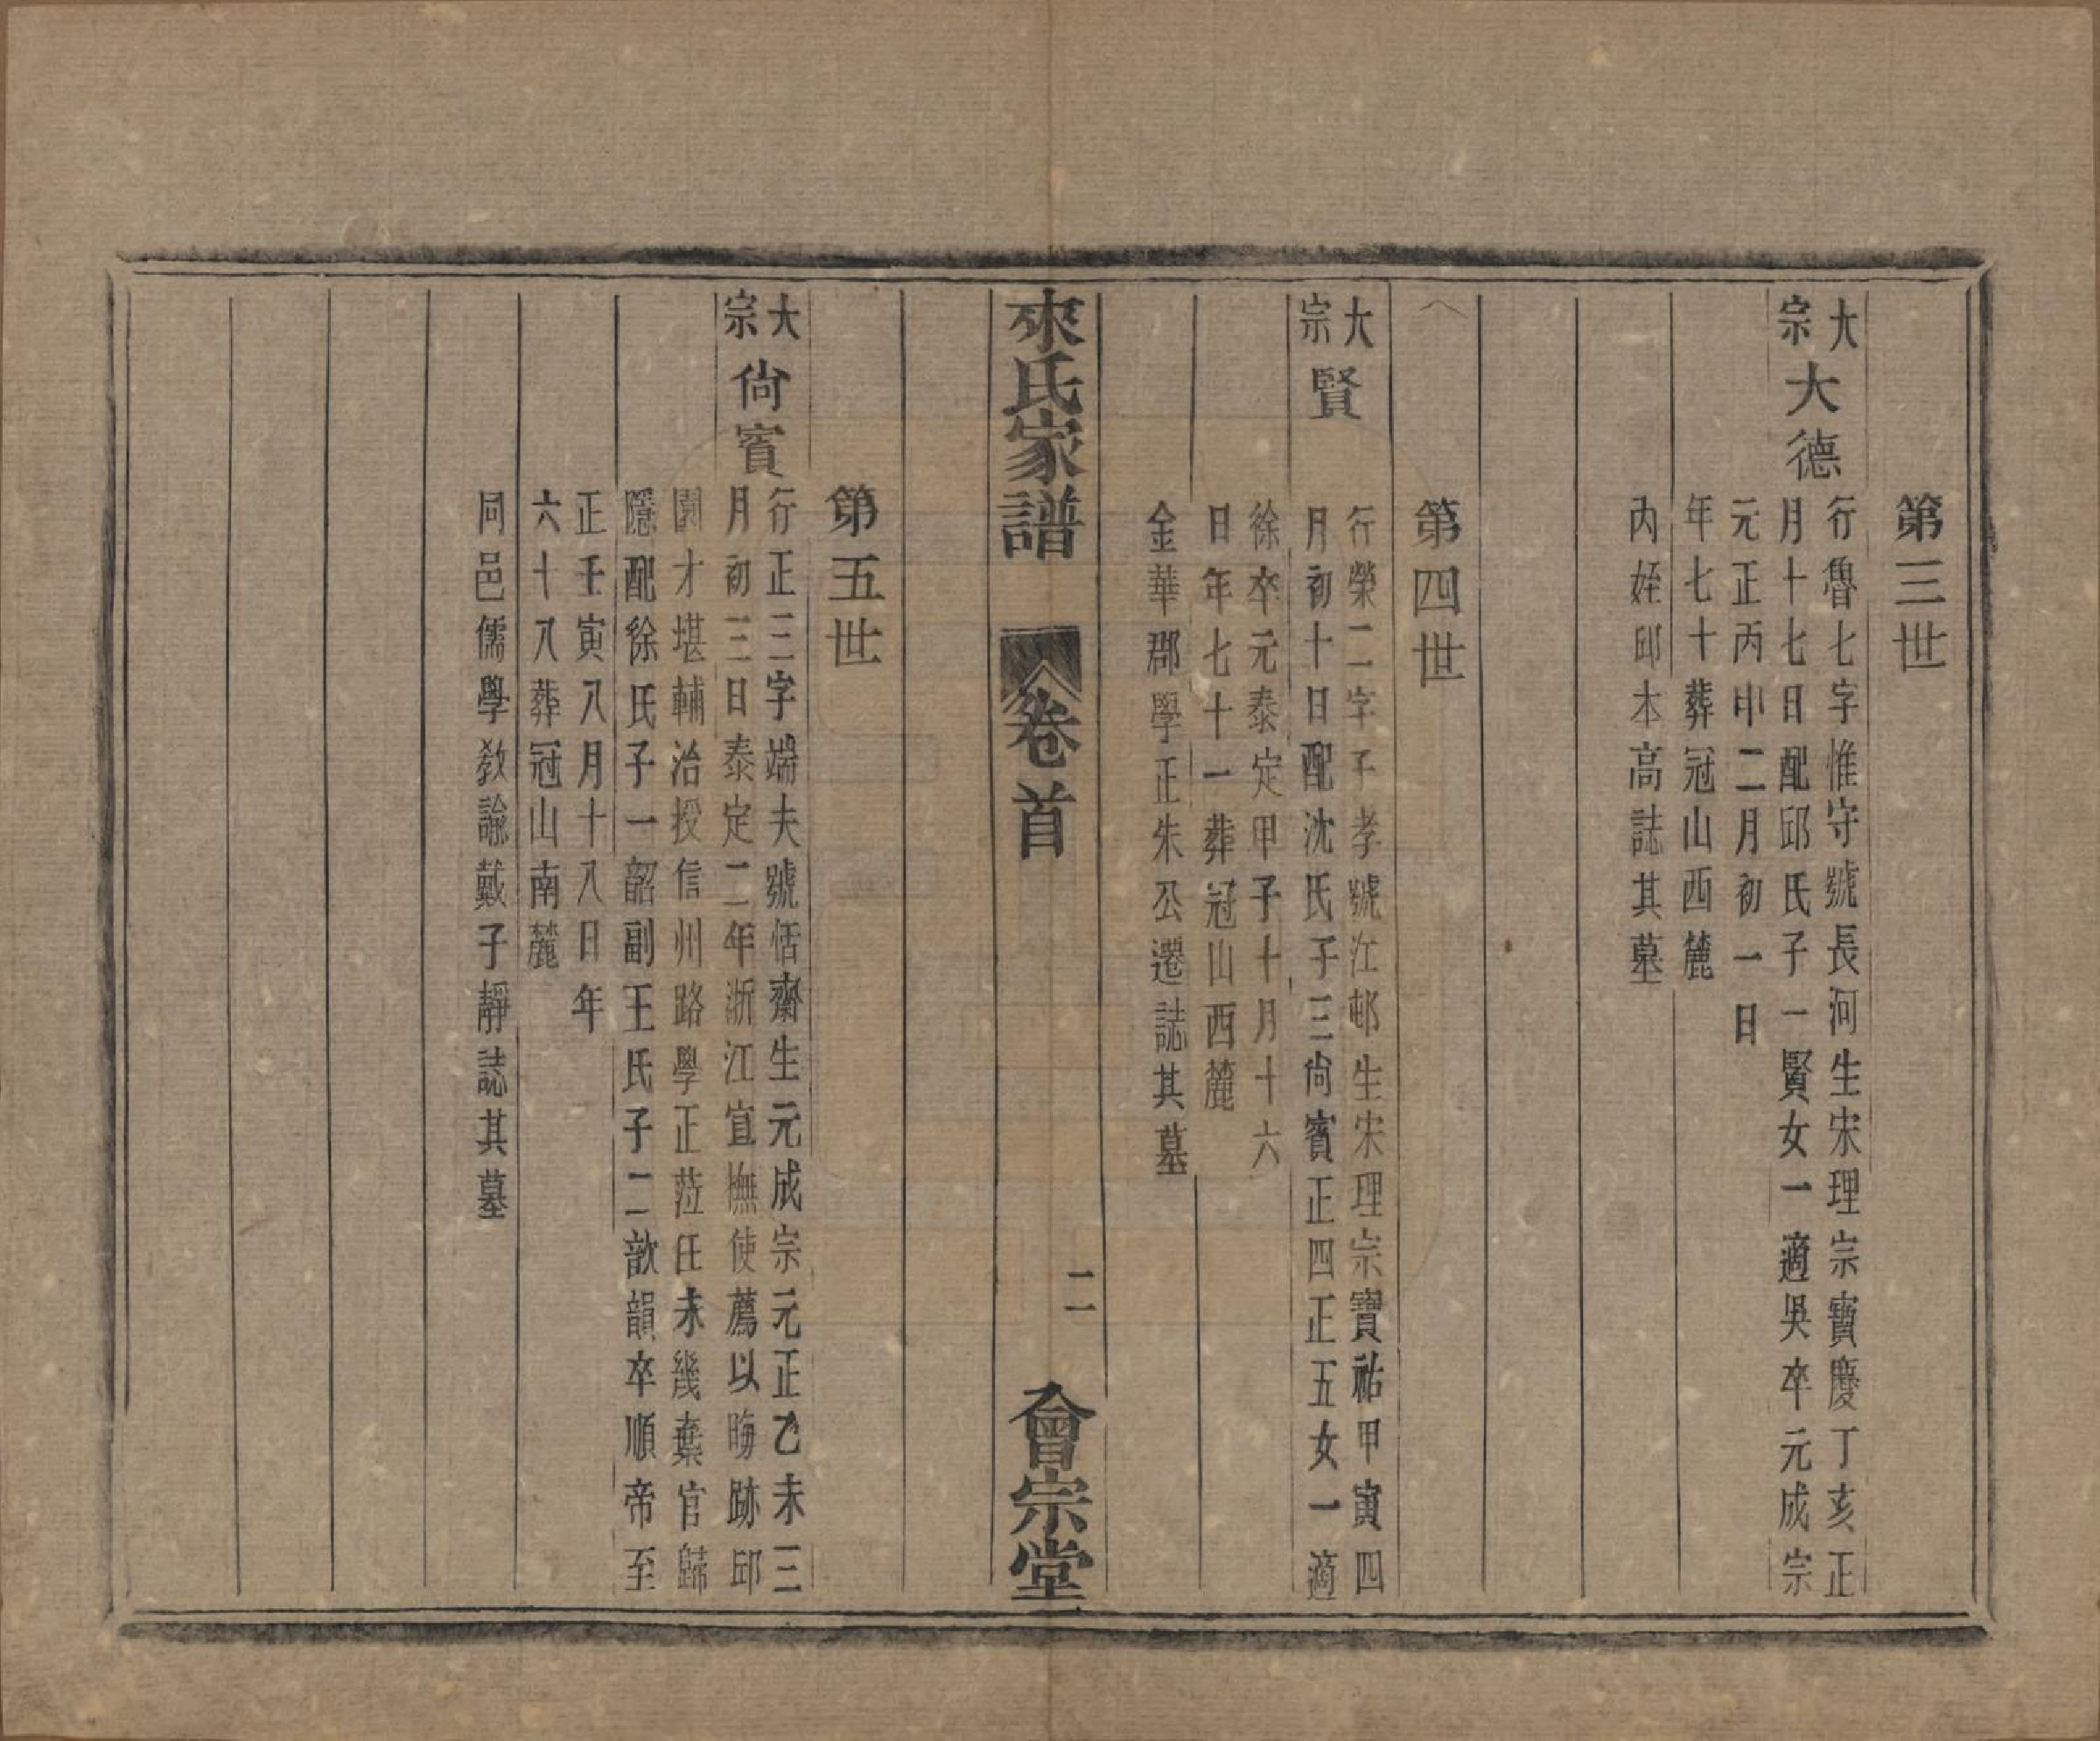 第三世
大宗大德行魯七字惟守號長河生宋理宗寶慶丁亥正
月十七日配邱氏子一賢女一適吳卒元成宗
元正丙申二月初一日
年七十葬冠山西麓
內姪邱木高誌其墓
第四世
大宗賢行榮二字子孝號江邨生宋理宗寶祐甲寅四
月初十日配沈氏子三尙賓正四正五女一適
徐卒元泰定甲子十月十六
日年七十一葬冠山西麓
金華郡學正朱公遷誌其墓
來氏家譜 卷首 二 會宗堂
第五世
大宗尙賓行正三字端夫號恬齋生元成宗元正乙未三
月初三日泰定二年浙江宣撫使薦以晦跡邱
園才堪輔治授信州路學正蒞任未幾棄官歸
隱配徐氏子一韶副王氏子二歆韻卒順帝至
正壬寅八月十八日年
六十八葬冠山南麓
同邑儒學敎諭戴子靜誌其墓